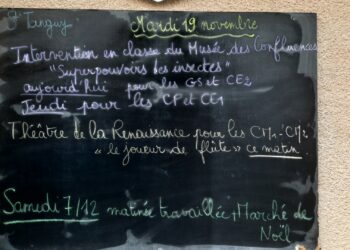 St Tanguy
Mardi 19 novembre
Intervention en classe du Musée des Confluences
"Superpouvoirs des insectes"
aujourd'hui pour les GS et CE2
Jeudi pour les CP et CE1
Théâtre de la Renaissance pour les CM1-CM2
"le joueur de flûte" ce matin.
Samedi 7/12 matinée travaillée + Marché de
Noël